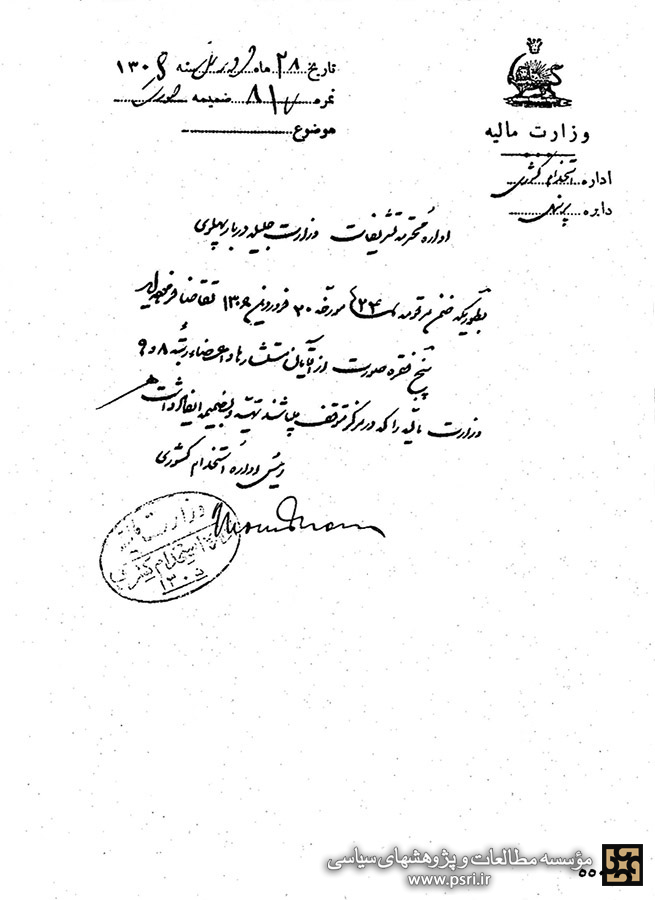 وزارت مالیه
اداره استخدام کشوری
دایره پرسنل
تاریخ ۲۸ ماه سنه ۱۳۰۶
نمره ضمیمه
موضوع
اداره محترمه تشریفات وزارت جلیله دربار پهلوی
بطوریکه ضمن مرقومه مورخه ۲۰ فروردین ۱۳۰۶ تقاضا فرموده‌اید
پنج فقره صورت از آقایان مستشارها و اعضاء رتبه ۸ و ۹
وزارت مالیه را که در مرکز متوقف میباشند تهیه و بضمیمه ایفاد داشت
رئیس اداره استخدام کشوری
وزارت مالیه
اداره استخدام کشوری
۱۳۰۵
مؤسسه مطالعات و پژوهشهای سیاسی
www.psri.ir